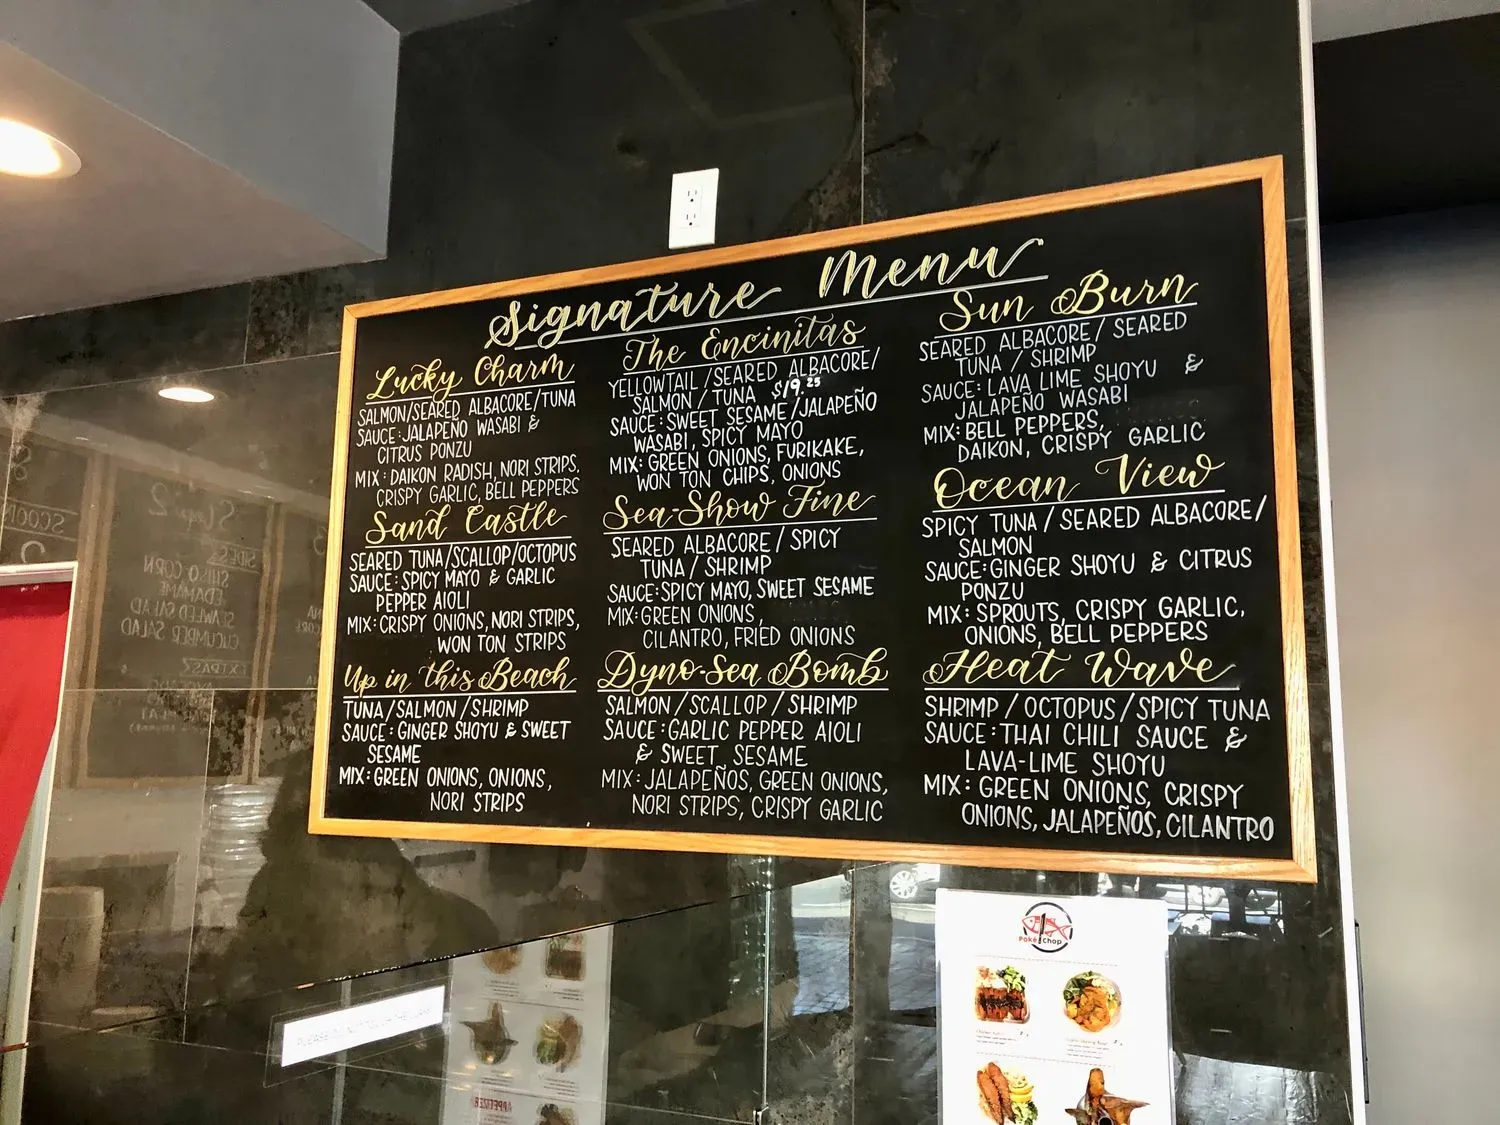 Signature Menu
Lucky Charm
SALMON/SEARED ALBACORE/TUNA
SAUCE: JALAPEÑO WASABI &
CITRUS PONZU
MIX: DAIKON RADISH, NORI STRIPS,
CRISPY GARLIC, BELL PEPPERS
Sand Castle
SEARED TUNA/SCALLOP/OCTOPUS
SAUCE: SPICY MAYO & GARLIC
PEPPER AIOLI
MIX: CRISPY ONIONS, NORI STRIPS,
WON TON STRIPS
Up in this Beach
TUNA/SALMON/SHRIMP
SAUCE: GINGER SHOYU & SWEET
SESAME
MIX: GREEN ONIONS, ONIONS,
NORI STRIPS
The Encinitas
YELLOWTAIL/SEARED ALBACORE/
SALMON/TUNA $19.25
SAUCE: SWEET SESAME/JALAPEÑO
WASABI, SPICY MAYO
MIX: GREEN ONIONS, FURIKAKE,
WON TON CHIPS, ONIONS
Sea-Show Fine
SEARED ALBACORE/SPICY
TUNA/SHRIMP
SAUCE: SPICY MAYO, SWEET SESAME
MIX: GREEN ONIONS,
CILANTRO, FRIED ONIONS
Dyno-Sea Bomb
SALMON/SCALLOP/SHRIMP
SAUCE: GARLIC PEPPER AIOLI
& SWEET SESAME
MIX: JALAPEÑOS, GREEN ONIONS,
NORI STRIPS, CRISPY GARLIC
Sun Burn
SEARED ALBACORE/SEARED
TUNA/SHRIMP
SAUCE: LAVA LIME SHOYU &
JALAPEÑO WASABI
MIX: BELL PEPPERS,
DAIKON, CRISPY GARLIC
Ocean View
SPICY TUNA/SEARED ALBACORE/
SALMON
SAUCE: GINGER SHOYU & CITRUS
PONZU
MIX: SPROUTS, CRISPY GARLIC,
ONIONS, BELL PEPPERS
Heat Wave
SHRIMP/OCTOPUS/SPICY TUNA
SAUCE: THAI CHILI SAUCE &
LAVA-LIME SHOYU
MIX: GREEN ONIONS, CRISPY
ONIONS, JALAPEÑOS, CILANTRO
Poké Chop
SIDES
SHIRO CORN
EDAMAME
SEAWEED SALAD
CUCUMBER SALAD